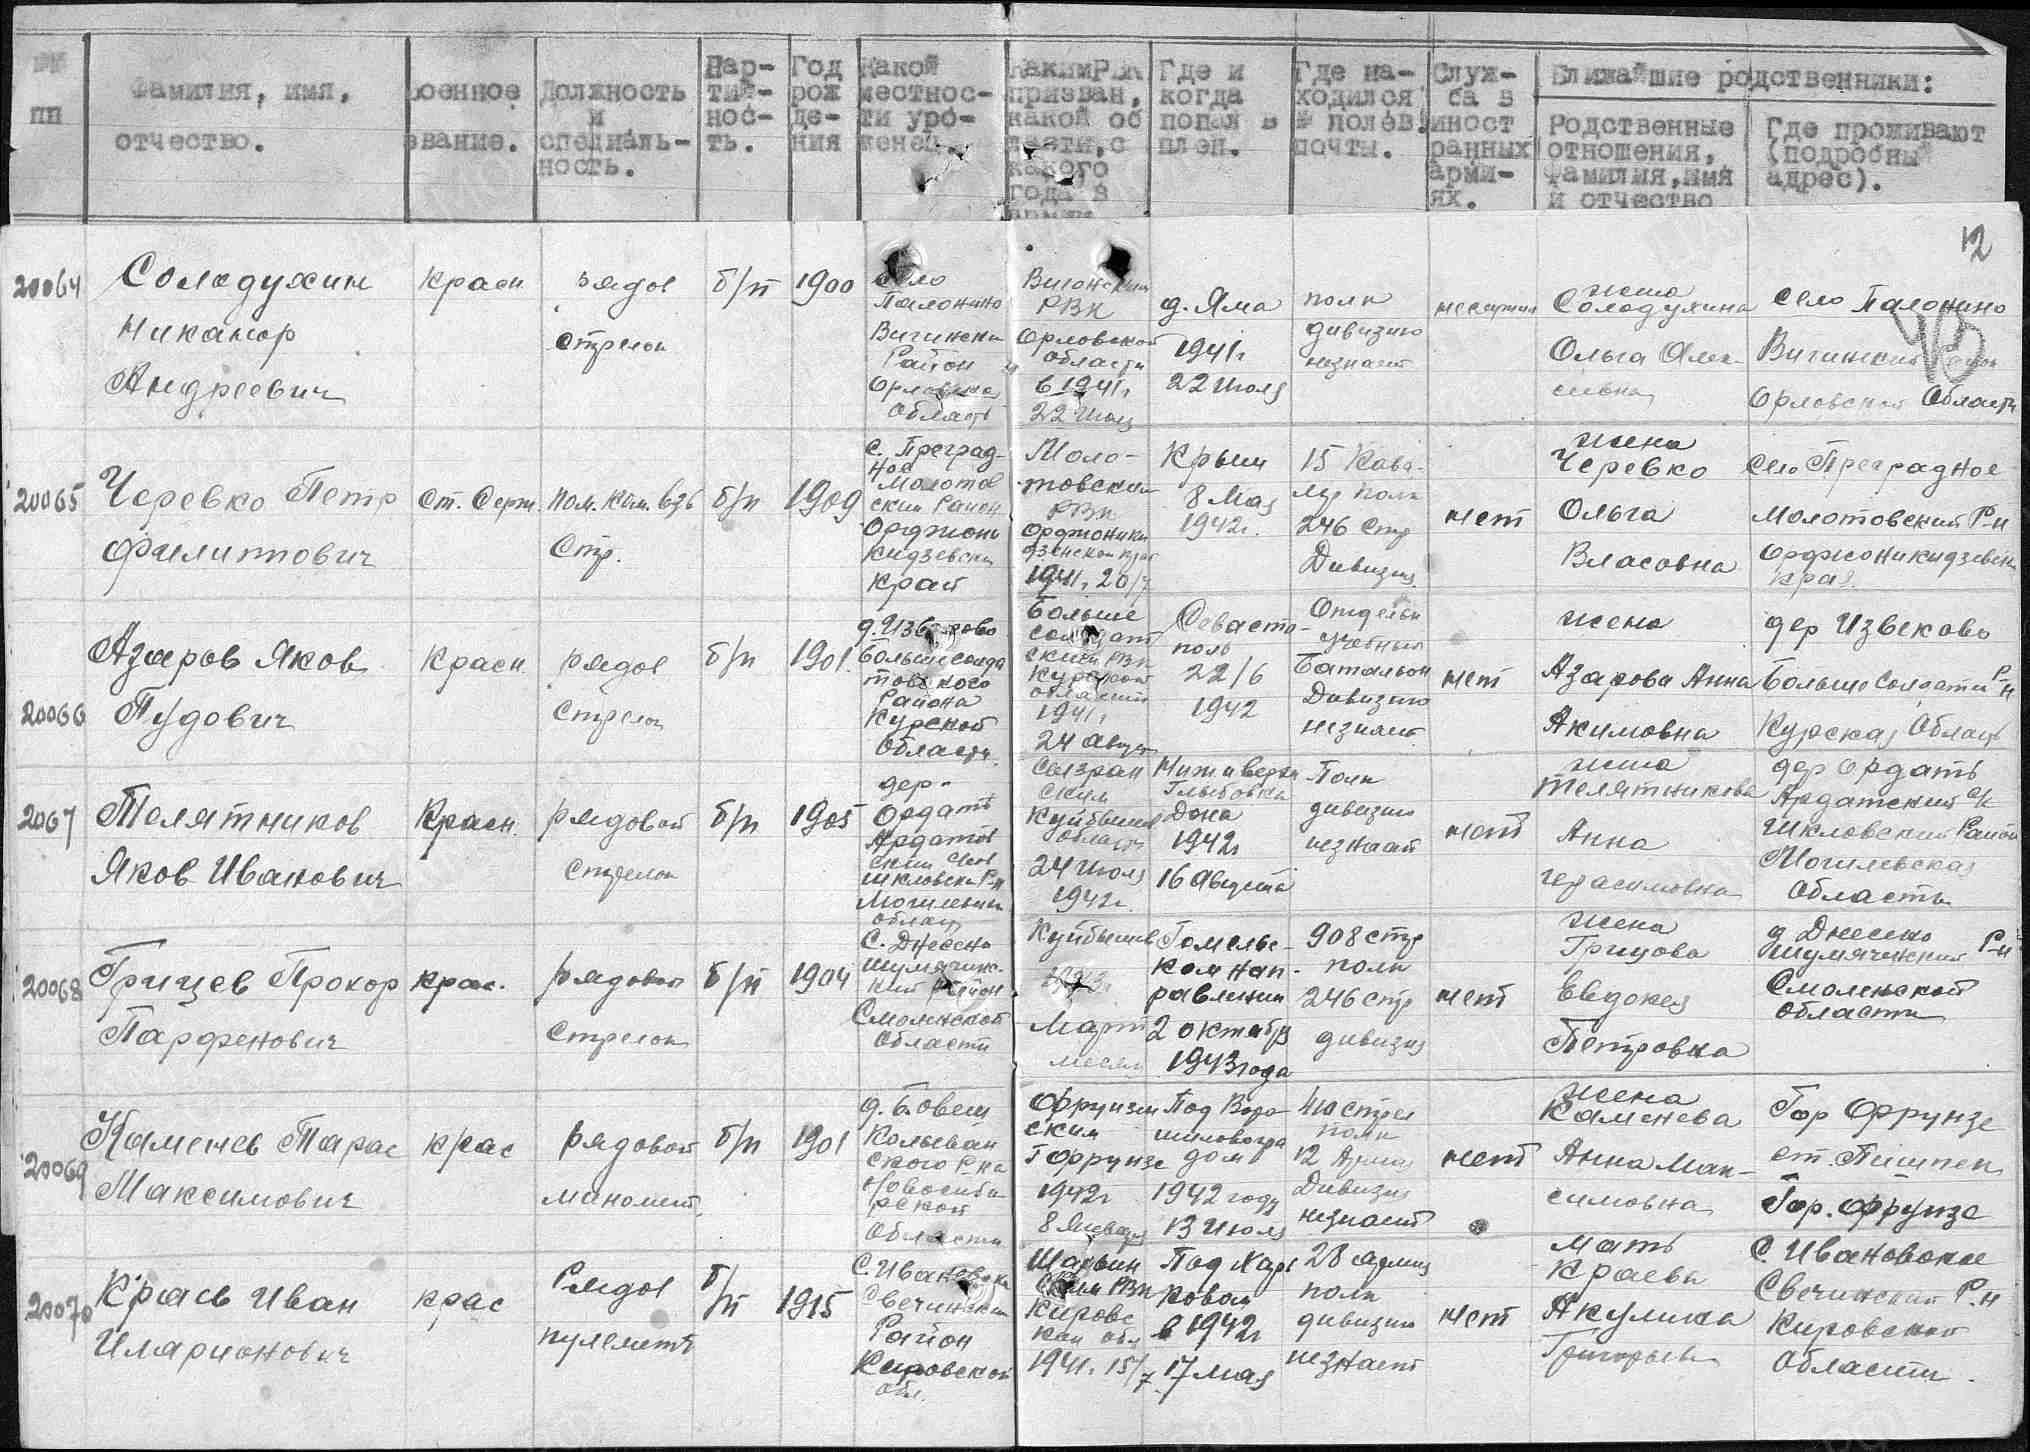 №№ пп
Фамилия, имя, отчество.
Военное звание.
Должность и специальность.
Пар-тий-нос-ть.
Год рож де-ния
Какой местнос-ти уро-женец
Каким РВК призван, какой об ласти, с какого года в армии
Где и когда попал в плен.
Где на-ходился № полев. почты.
Служ-ба в иност ранных арми-ях.
Ближайшие родственники:
Родственные отношения, фамилия, имя и отчество
Где проживают (подробный адрес).
12
20064
Солодухин
Никанор
Андреевич
красн
рядов
стрелок
б/п
1900
село
Палонино
Район
Орловская
область
РВК
Орловской
области
в 1941г
22 июля
д. Яма
1941г
22 июля
полк
дивизию
незнает
неслужил
жена
Солодухина
Ольга Алек-
сеевна
село Палонино
Орловской Области
20065
Черевко Петр
Филиппович
ст. Серж.
Пом. ком. взв
Стр.
б/п
1909
с. Преград-
ное
Молотов
ский Район
Орджони
кидзевский
край
Моло-
товский
РВК
Орджоники
дзевской край
1941г 20/7
Крым
8 Мая
1942г.
15 Кава-
лер полк
246 Стр
Дивизия
нет
жена
Черевко
Ольга
Власовна
село Преградное
Молотовский Р-н
Орджоникидзевский
край
20066
Азаров Яков
Пудович
красн.
рядов
стрелок
б/п
1901.
Большесолда
товского
Района
Курской
Области.
Больше
солдат
ский РВК
Курской
области
1941г
24 август
Севасто-
поль
22/6
1942
Отдельн
учебный
Батальон
Дивизию
незнает
нет
жена
Азарова Анна
Акимовна
дер Извеково
Больше Солдатский Р-н
Курская Область
2067
Телятников
Яков Иванович
Красн.
рядовой
стрелок
б/п
1905
дер-
Ордать
Ардатов
ский с/сов
Шкловский Р-н
Могилевская
область
Сызран
ский
Куйбышев
область
24 июля
1942г.
Дона
1942г
16 Августа
Полк
дивизию
незнает
нет
жена
Телятникова
Анна
Герасимовна
дер Ордать
Ардатский с/с
Шкловский Район
Могилевская
область
20068
Грицев Прохор
Парфенович
крас.
рядовой
стрелок
б/п
1904
Шумячинс-
кий район
Смоленской
области
Куйбышев
Март
месяц
Гомельс-
ком нап-
равлении
2 октября
1943 года
908 стр
полк
246 стр
дивизия
нет
жена
Грицова
Евдокея
Петровна
Шумячинский Р-н
Смоленской
области
20069
Каменев Тарас
Максимович
крас
рядовой
миномет.
б/п
1901
Колыван
ского Р-на
Новосиби
рской
Области
Фрунзен
ский
Г Фрунзе
1942г
8 Января
Под Воро-
шиловогра
дом
1942 году
13 Июля
полк
12 Армия
Дивизия
незнает
нет
жена
Каменева
Анна Мак-
симовна
Гор Фрунзе
ст. Пишпек
Гор. Фрунзе
20070
Краев Иван
Иларионович
крас
Рядов
пулеметч
б/п
1915
С. Ивановское
Свечинский
Район
Кировской
обл.
Шарьин
ский РВК
Кировс
кой обл
1941г. 15/7
Под Харь
ковом
в 1942г
17 мая
28 армия
полк
дивизию
незнает
нет
мать
Краева
Акулина
Григорьев
с Ивановское
Свечинский Р-н
Кировской
области.